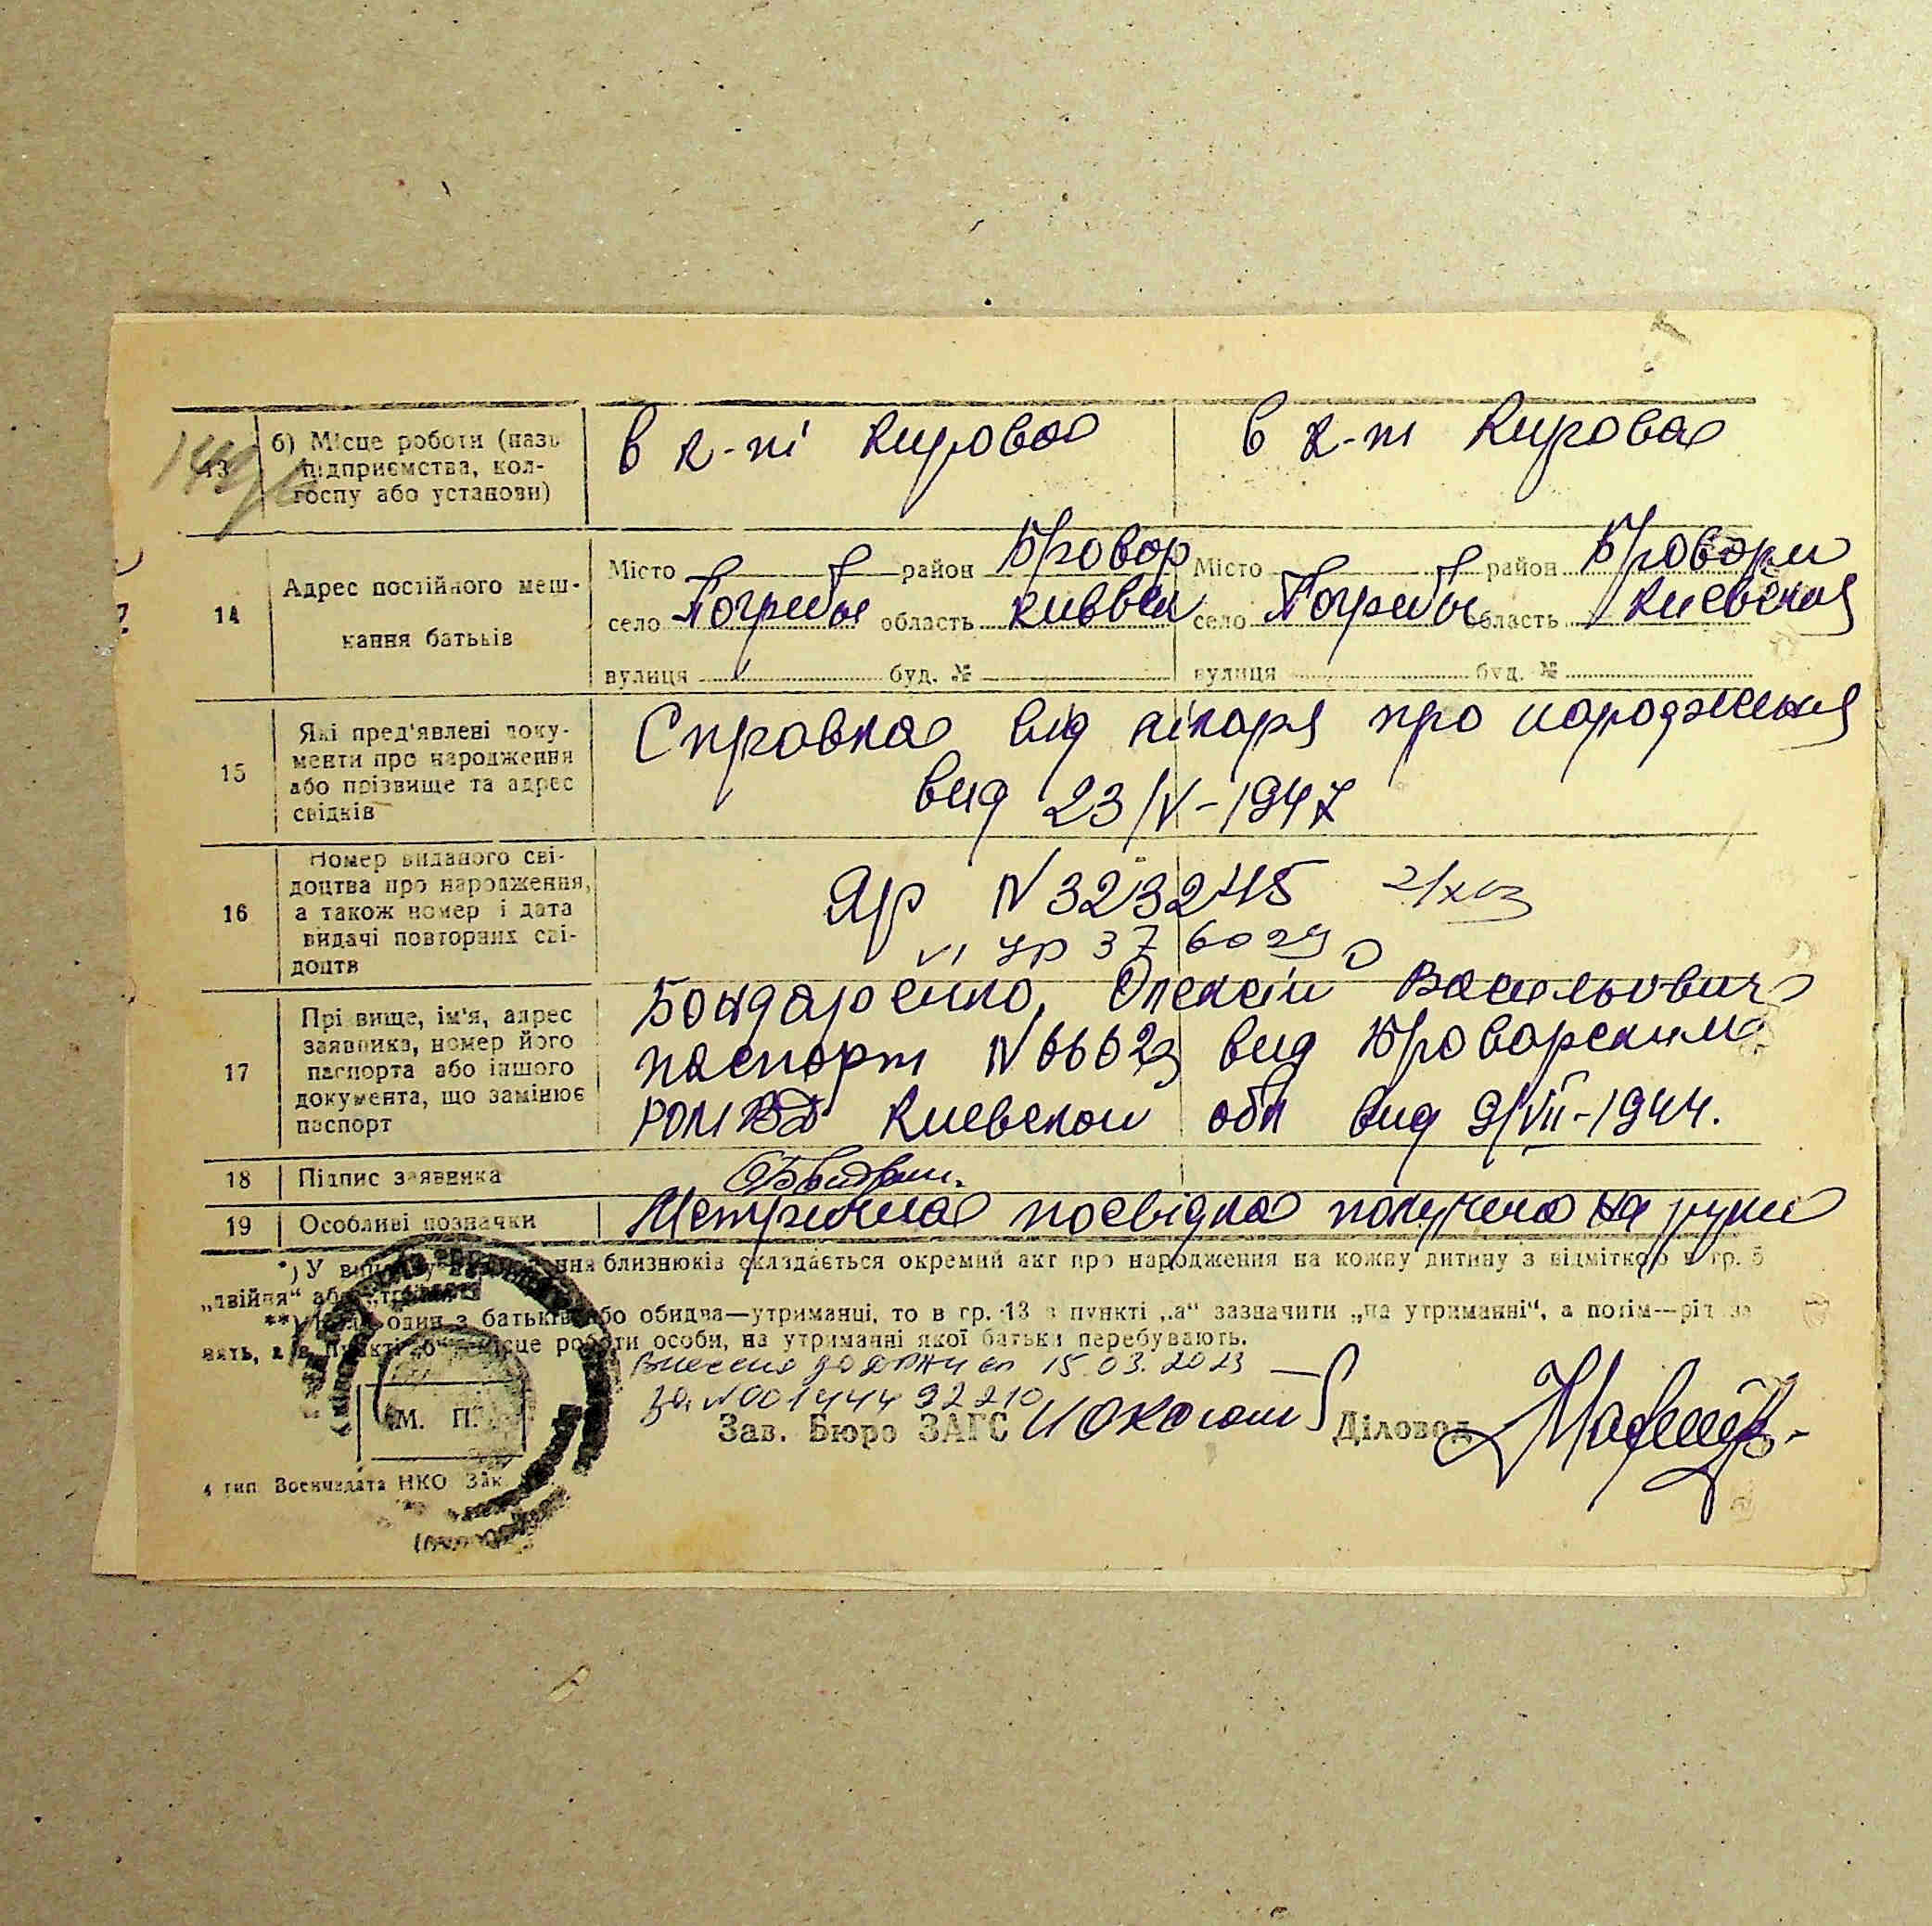 13 б) Місце роботи (назв підприємства, кол-госпу або установи) в к-пі Кирова в к-пі Кирова
149
14 Адрес постійного меш-кання батьків
Місто район Бровар Місто район Бровари
село Погреби область Київськ село Погреби область Киевская
вулиця буд. № вулиця буд. №
15 Які пред'явлені доку-
менти про народження
або прізвище та адрес
свідків
Справка від лікаря про народження
вид 23/V-1947
16 Номер виданого сві-
доцтва про народження,
а також номер і дата
видачі повторних сві-
доцтв
Яр N 3232415
VI УР 376029
17 Прізвище, ім'я, адрес
заявника, номер його
паспорта або іншого
документа, що замінює
паспорт
Бондаренко, Олексій Васильович
паспорт N 66029 вид Броварским
РОМВД Киевской обл вид 9/VII-1944.
18 Підпис заявника
19 Особливі позначки Метрична посвідка получена на руки
*) У випадку народження близнюків складається окремий акт про народження на кожну дитину з відміткою в гр. 5
„двійня“ або „трійня“
**) Коли один з батьків або обидва—утриманці, то в гр. 13 в пункті „а“ зазначити „на утриманні“, а потім—рід за
нять, а в пункті „б“ місце роботи особи, на утриманні якої батьки перебувають.
Внесено до ДРАЦС 15.03.2023
за N 00144492210
М. П. Зав. Бюро ЗАГС Діловод
4 тип Воениздата НКО Зак